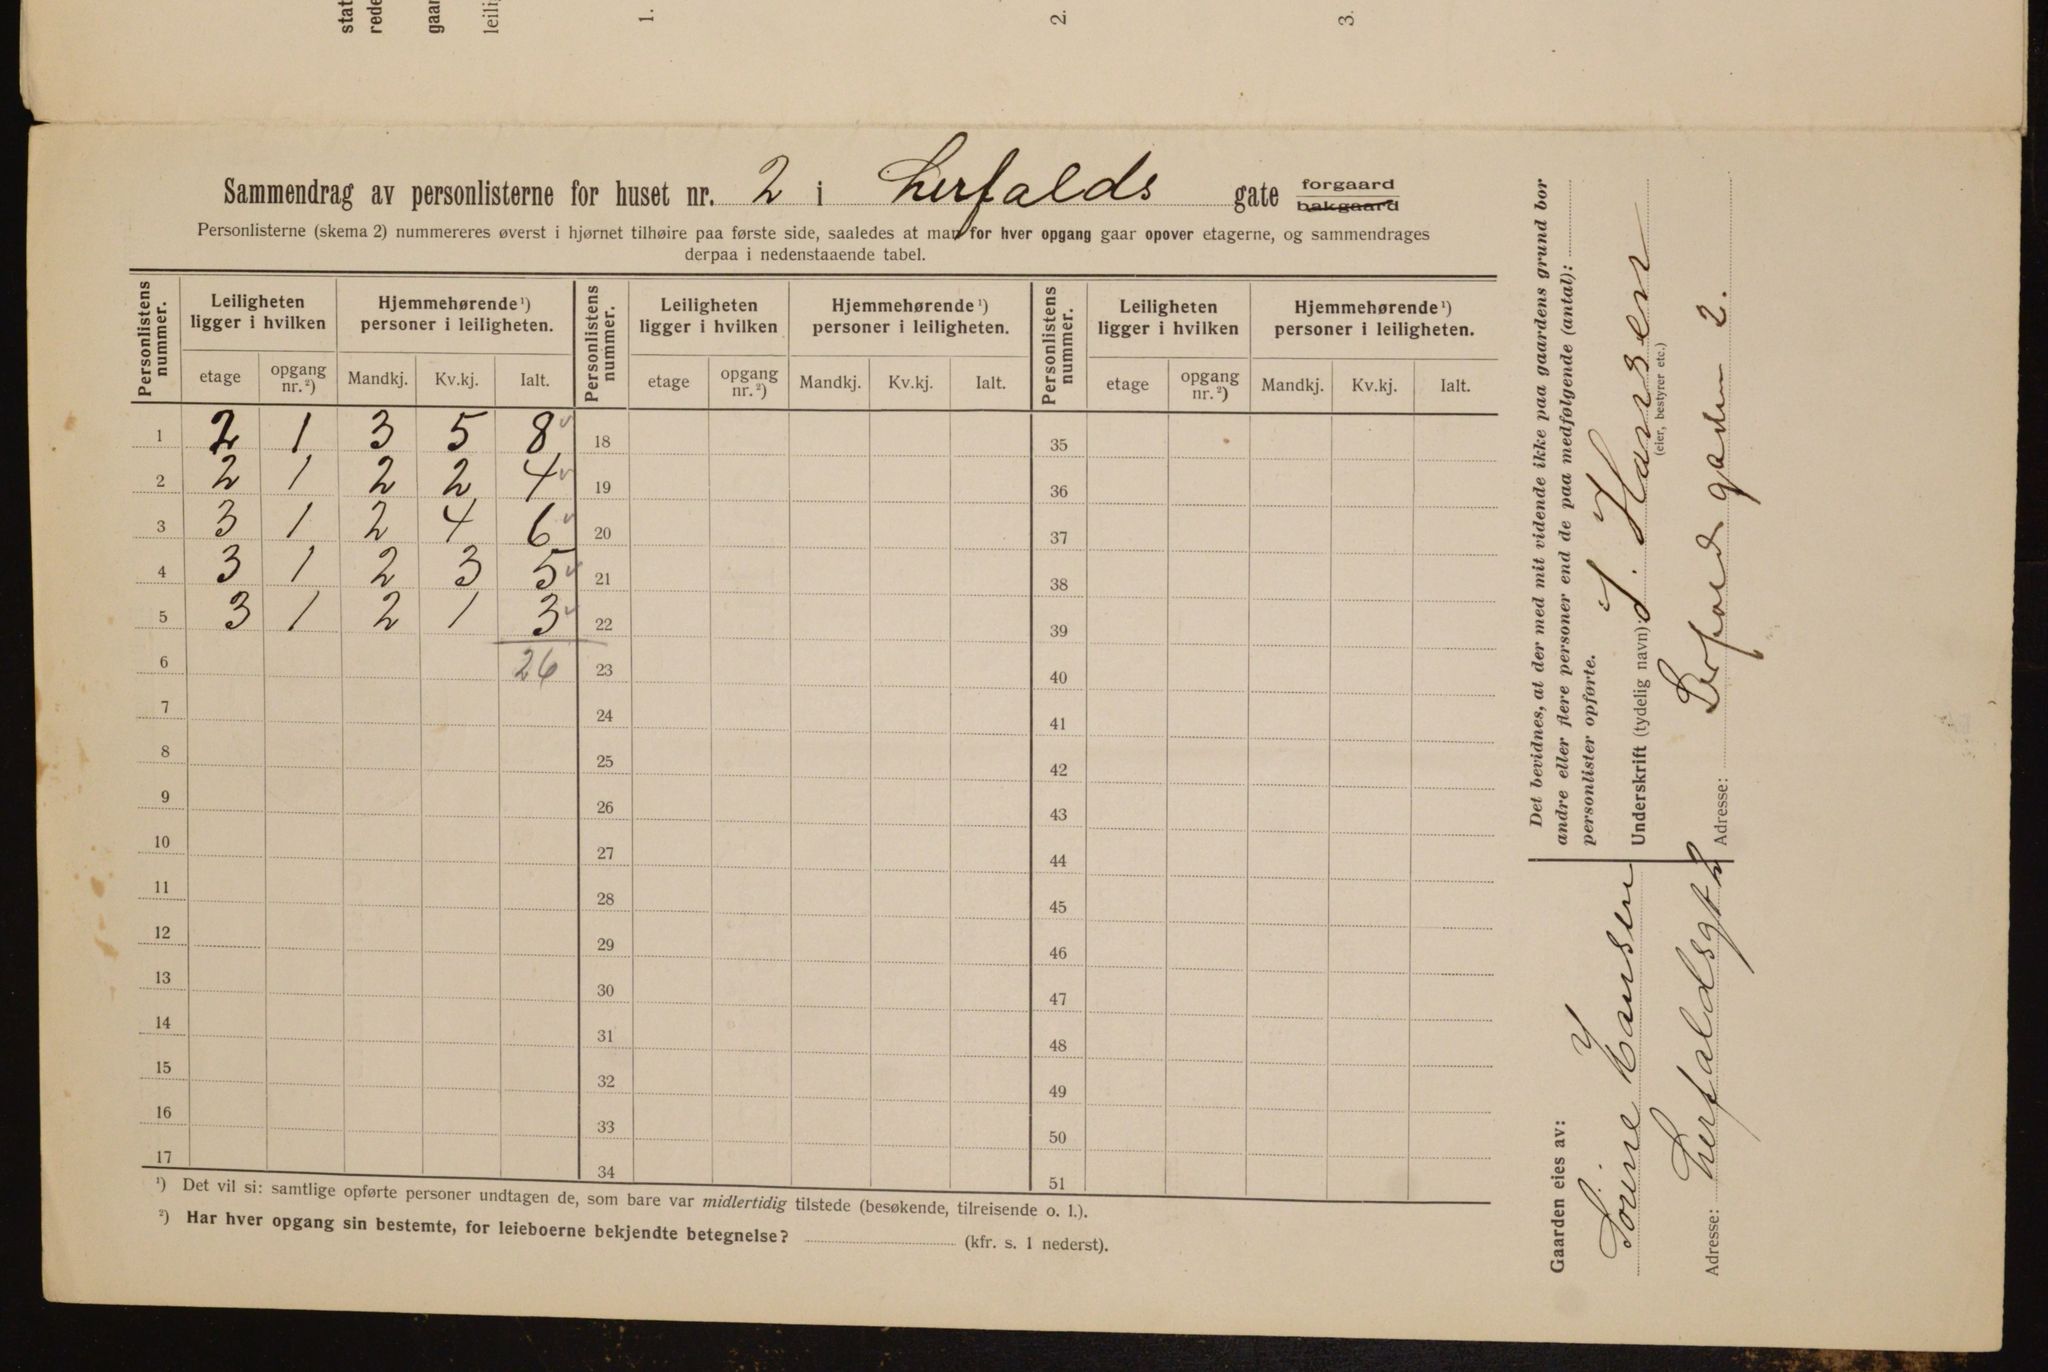 stat
rede
gaar
leilig
1.
2.
3.
Sammendrag av personlisterne for huset nr. 2 i Lerfalds gate forgaard bakgaard
Personlisterne (skema 2) nummereres øverst i hjørnet tilhøire paa første side, saaledes at man for hver opgang gaar opover etagerne, og sammendrages
derpaa i nedenstaaende tabel.
Personlistens nummer. Leiligheten ligger i hvilken Hjemmehørende ¹) personer i leiligheten. Personlistens nummer. Leiligheten ligger i hvilken Hjemmehørende ¹) personer i leiligheten. Personlistens nummer. Leiligheten ligger i hvilken Hjemmehørende ¹) personer i leiligheten.
etage opgang nr. ²) Mandkj. Kv.kj. Ialt. etage opgang nr. ²) Mandkj. Kv.kj. Ialt. etage opgang nr. ²) Mandkj. Kv.kj. Ialt.
1 2 1 3 5 8 18 35
2 2 1 2 2 4 19 36
3 3 1 2 4 6 20 37
4 3 1 2 3 5 21 38
5 3 1 2 1 3 22 39
6 26 23 40
7 24 41
8 25 42
9 26 43
10 27 44
11 28 45
12 29 46
13 30 47
14 31 48
15 32 49
16 33 50
17 34 51
¹) Det vil si: samtlige opførte personer undtagen de, som bare var midlertidig tilstede (besøkende, tilreisende o. l.).
²) Har hver opgang sin bestemte, for leieboerne bekjendte betegnelse? (kfr. s. 1 nederst).
Det bevidnes, at der med mit vidende ikke paa gaardens grund bor
andre eller flere personer end de paa medfølgende (antal):
personlister opførte.
Underskrift (tydelig navn): Hansen
(eier, bestyrer etc.)
Adresse: Lerfalds gaden 2.
Gaarden eies av:
Hansen
Adresse: Lerfaldsgt 2